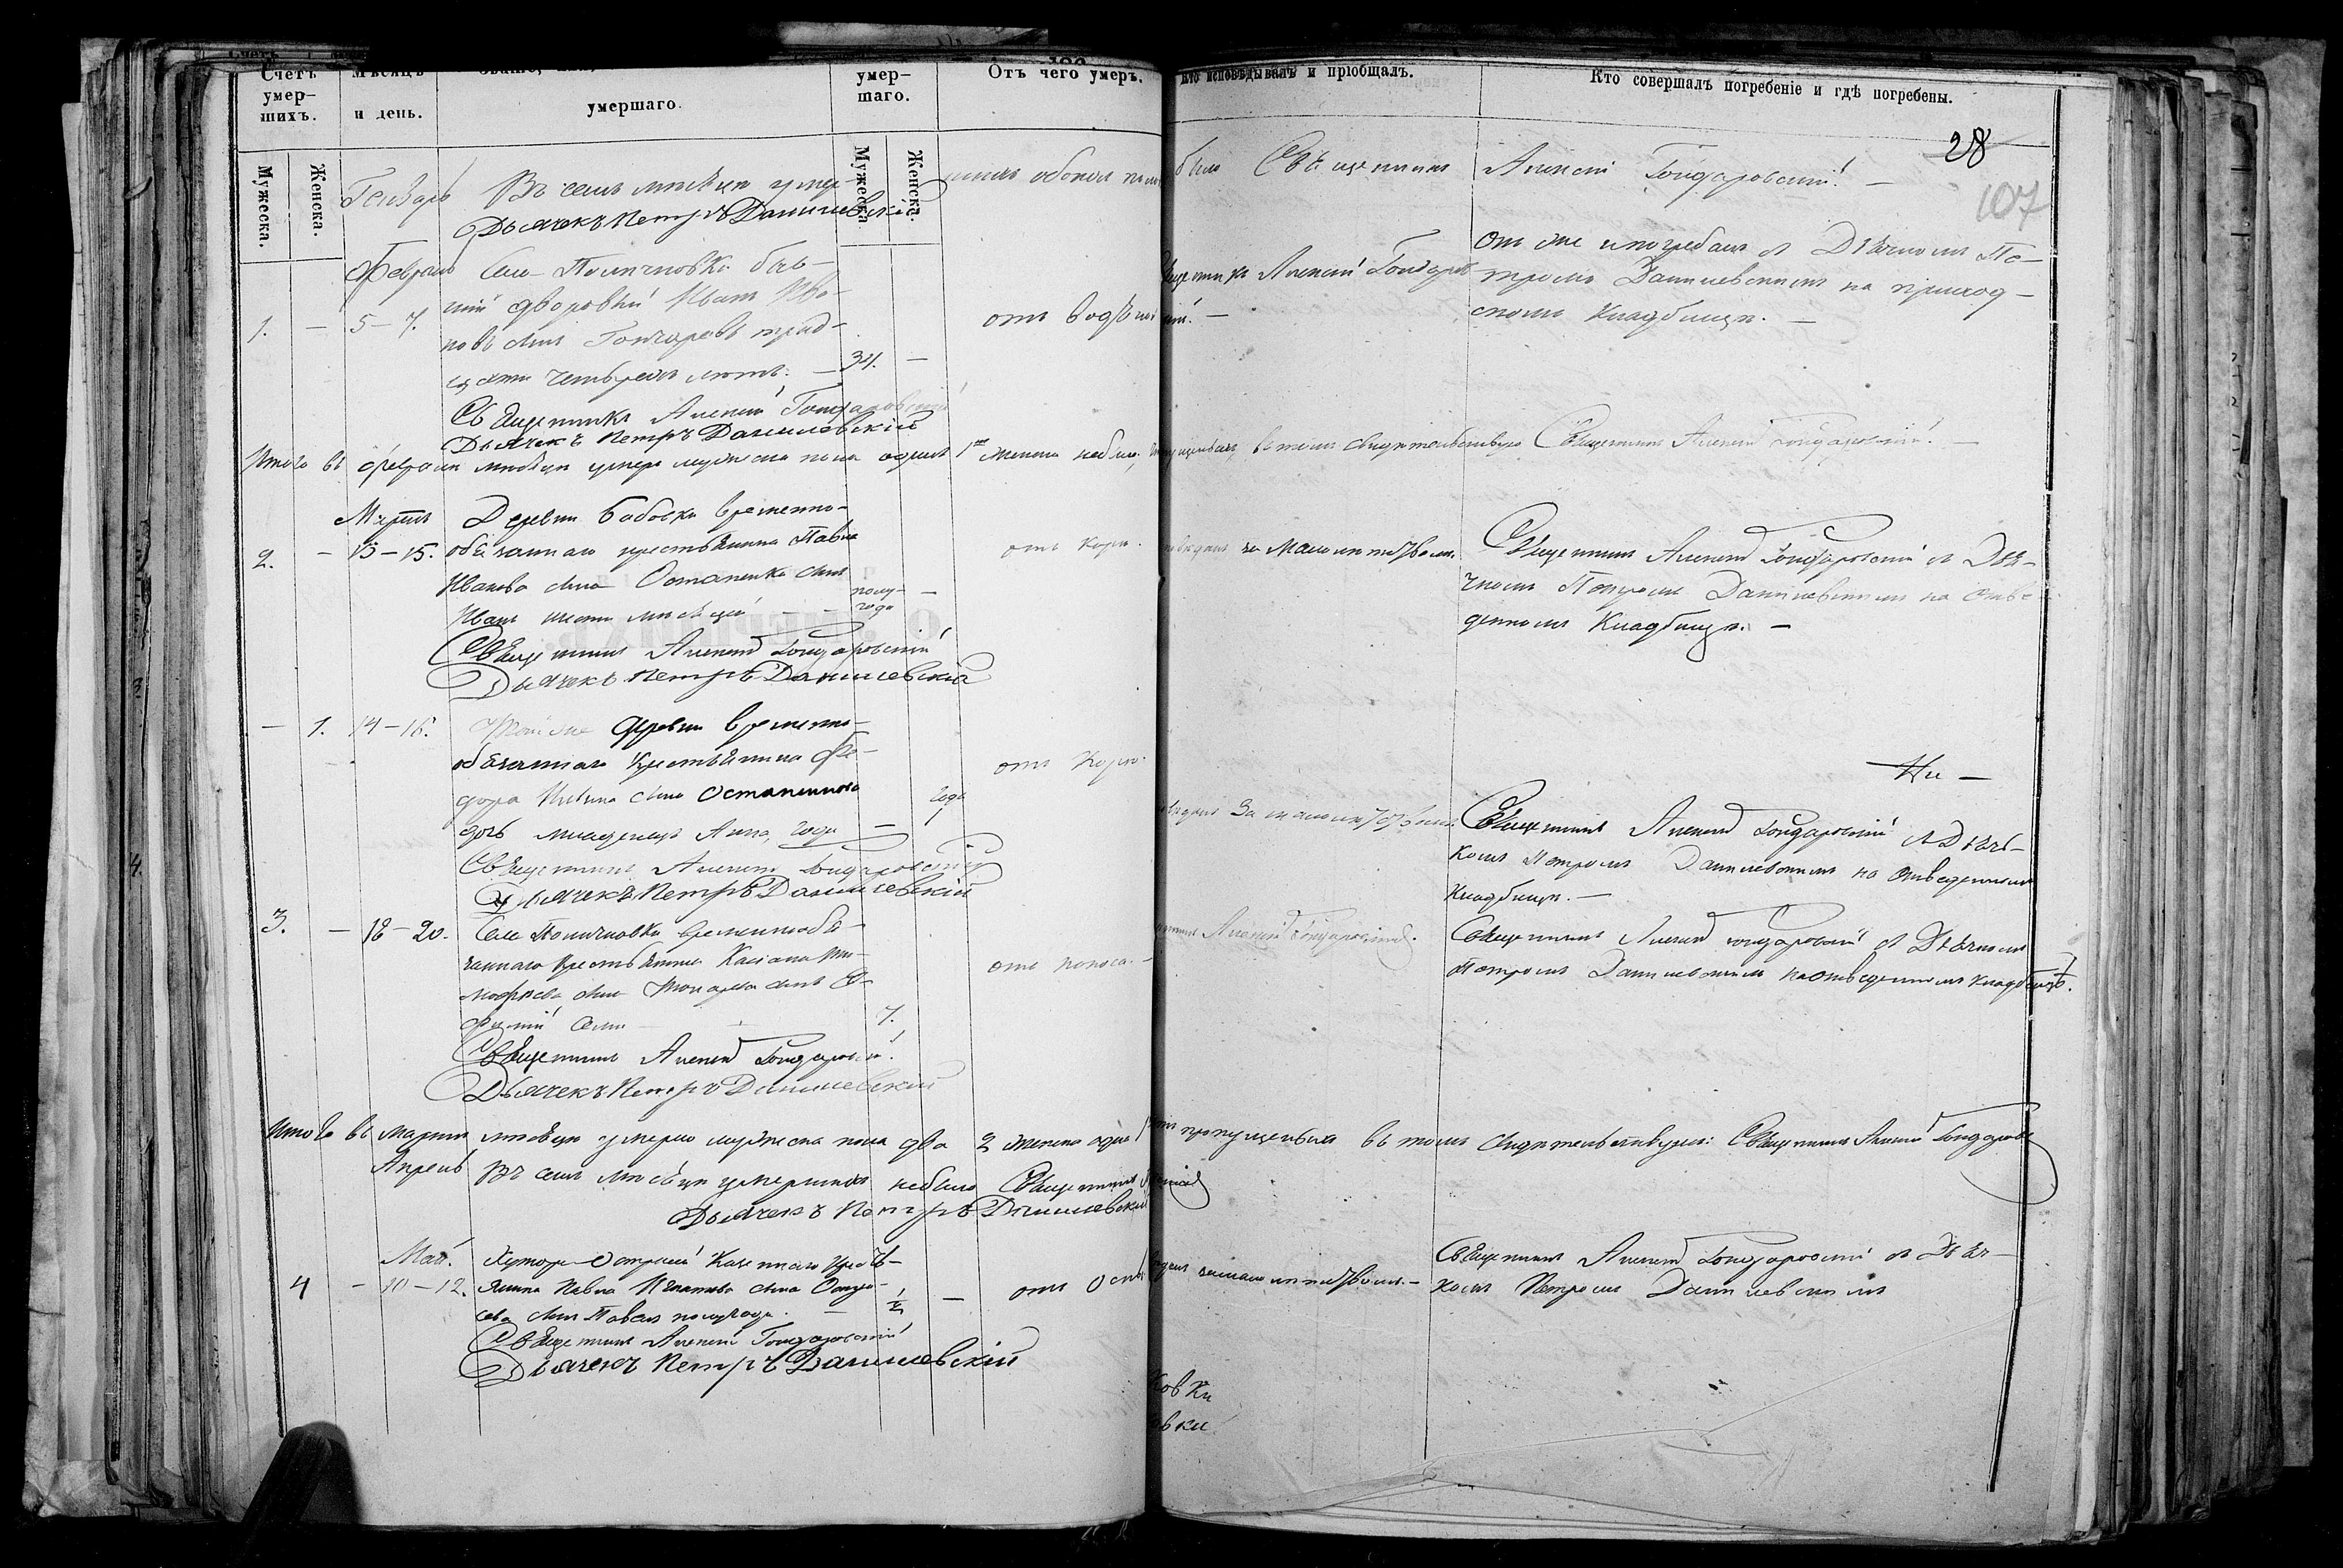 Счетъ
умер-
шихъ.
Мѣсяцъ
и день.
умершаго.
умер-
шаго.
Отъ чего умеръ.
кто исповѣдывалъ и пріобщалъ.
Кто совершалъ погребеніе и гдѣ погребены.
28
107
Мужеска.
Женска.
Мужеска.
Женска.
Генварь
Въ семъ мѣсяцѣ умер-
шихъ обоего пола
было Священникъ Алексій Гондаровскій. —
Дьячекъ Петръ Данилевскій
Февраль
1. — 5-7.
Села
быв-
шій дворовый Иванъ Ива-
новъ сынъ Гончаровъ трид-
цати четырехъ лѣтъ. — 34. —
отъ водяной
Священникъ Алексій Гондаров
скій. —
Онъ же и погребалъ съ Дьячкомъ Пе-
тромъ Данилевскимъ на приход-
скомъ Кладбищѣ. —
Священникъ Алексій Гондаровскій
Дьячекъ Петръ Данилевскій
Итого въ февралѣ мѣсяцѣ умеро мужеска пола одинъ 1 женска небыло
въ томъ свидѣтельствую Священникъ Алексій Гондаровскій. —
Мартъ
2. — 13-15.
Деревни Бабовки временно-
обязаннаго крестьянина Павла
Иванова сына Остапенка сынъ
Иванъ шести мѣсяцей — —
полу-
года
—
отъ кори.
за малолѣтствомъ.
Священникъ Алексій Гондаровскій съ Дья-
чкомъ Петромъ Данилевскимъ на отве-
денномъ Кладбищѣ. —
Священникъ Алексій Гондаровскій
Дьячекъ Петръ Данилевскій
— 1. 14-16.
Той же деревни временно-
обязаннаго Крестьянина Фе-
дора
сына Остапенкова
дочь младенецъ Анна, года —
года
1
отъ Кори.
за малолѣтствомъ.
Священникъ Алексій Гондаровскій съ Дьяч-
комъ Петромъ Данилевскимъ на отведенномъ
Кладбищѣ. —
Священникъ Алексій Гондаровскій
Дьячекъ Петръ Данилевскій
3. — 18-20.
Села
временнообя-
заннаго Крестьянина Касіана Ти-
мофѣева сына
сынъ
семи
7.
отъ поноса. —
Алексій Гондаровскій.
Священникъ Алексій Гондаровскій съ Дьячкомъ
Петромъ Данилевскимъ на отведенномъ кладбищѣ.
Священникъ Алексій Гондаровскій.
Дьячекъ Петръ Данилевскій
Итого въ мартѣ мѣсяцѣ умерло мужеска пола два 2 женска одна 1
въ томъ свидѣтельствуемъ: Священникъ Алексій Гондаровс
Апрель
Въ семъ мѣсяцѣ умершихъ небыло Священникъ
Дьячекъ Петръ Данилевскій
Май.
4 — 10-12.
Хутора
Казеннаго Кресть-
янина Павла Игнатова сына
сынъ Павелъ полугода. —
½ —
отъ Оспы
за малолѣтствомъ. —
Священникъ Алексій Гондаровскій съ Дьяч-
комъ Петромъ Данилевскимъ
Священникъ Алексій Гондаровскій
Дьячекъ Петръ Данилевскій